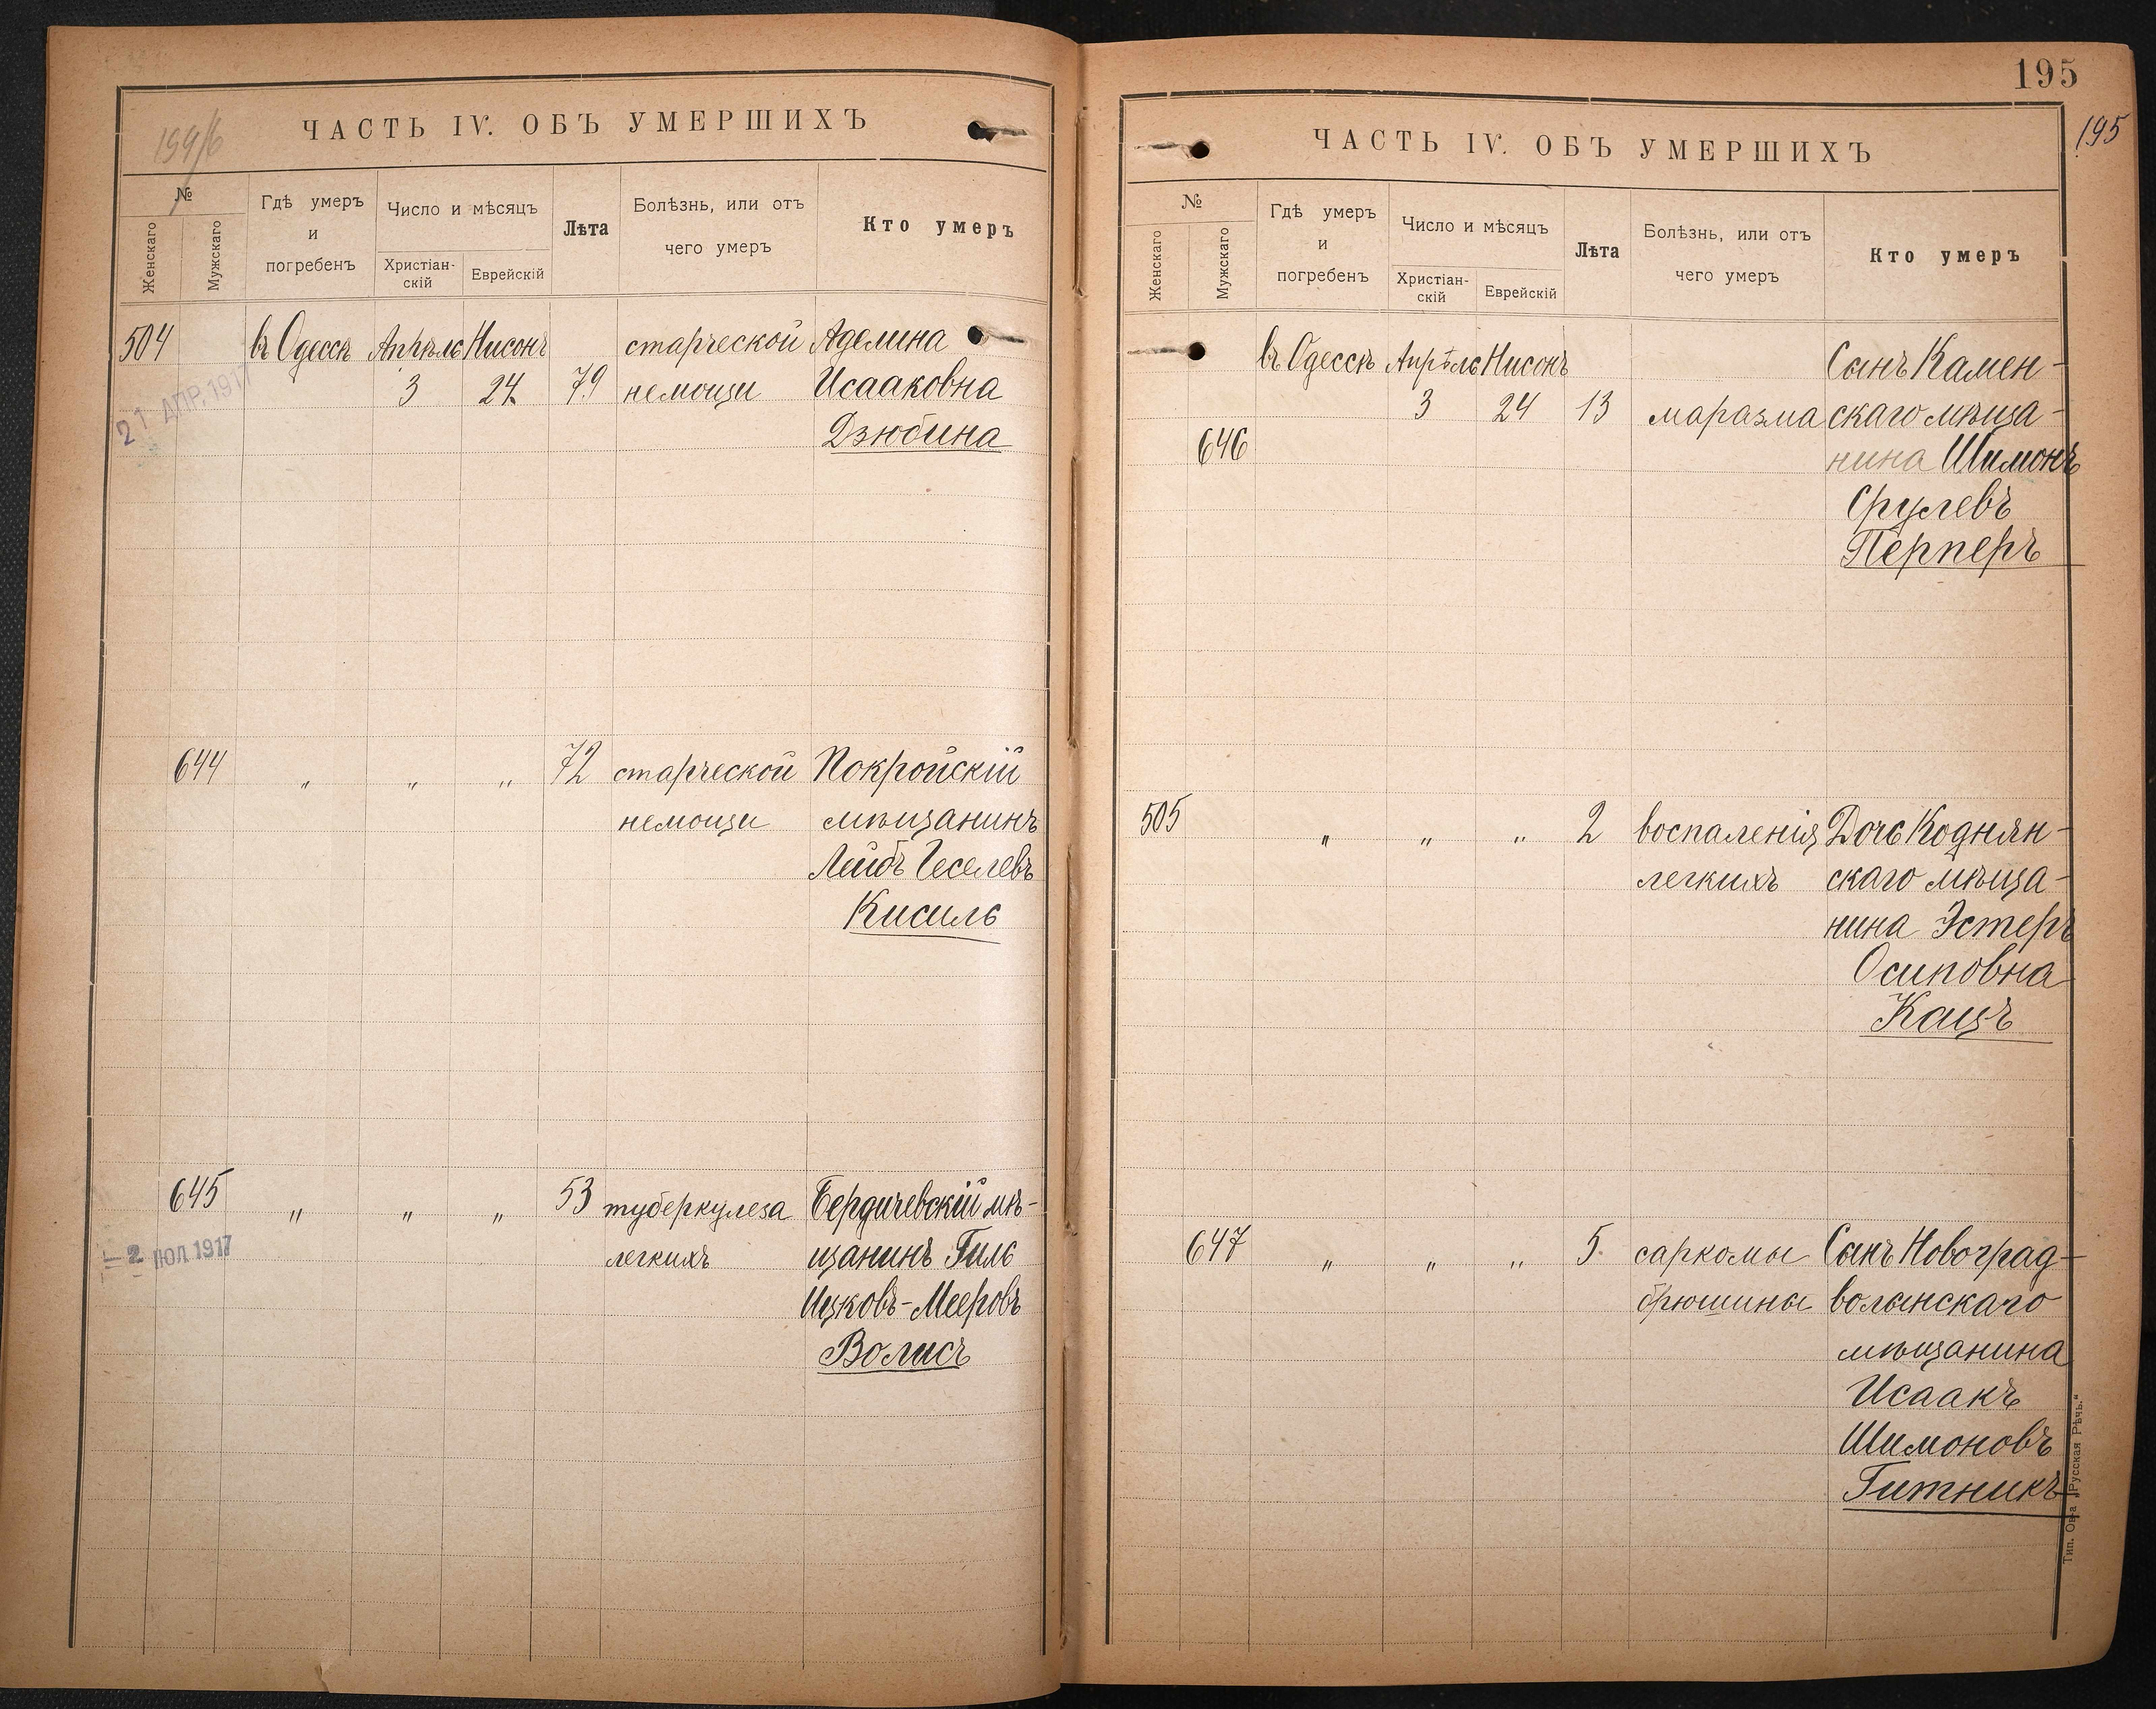 194/б
ЧАСТЬ IV. ОБЪ УМЕРШИХЪ
№
Женскаго
Мужскаго
Гдѣ умеръ
и
погребенъ
Число и мѣсяцъ
Христіан-
скій
Еврейскій
Лѣта
Болѣзнь, или отъ
чего умеръ
Кто умеръ
504 въ Одессѣ Апрѣль Нисонъ старческой Аделина
3 24 79 немощи Исааковна
21 АПР. 1917
Дзюбина
644 " " " 72 старческой Покройскій
немощи мѣщанинъ
Лейбъ Геселевъ
Кисиль
645 " " " 53 туберкулеза Бердичевскій мѣ-
легкихъ щанинъ Гиль
- 2 ІЮЛ 1917
Ицковъ-Мееровъ
Волисъ
195
195
ЧАСТЬ IV. ОБЪ УМЕРШИХЪ
№
Женскаго
Мужскаго
Гдѣ умеръ
и
погребенъ
Число и мѣсяцъ
Христіан-
скій
Еврейскій
Лѣта
Болѣзнь, или отъ
чего умеръ
Кто умеръ
въ Одессѣ Апрѣль Нисонъ Сынъ Камен-
3 24 13 маразма скаго мѣща-
646 нина Шимонъ
Срулевъ
Перперъ
505 " " " 2 воспаленія Дочь Коднян-
легкихъ скаго мѣща-
нина Эстеръ
Осиповна
Кацъ
647 " " " 5 саркомы Сынъ Новоград-
брюшины волынскаго
мѣщанина
Исаакъ
Шимоновъ
Гитникъ
Тип. Ов-а „Русская Рѣчь."